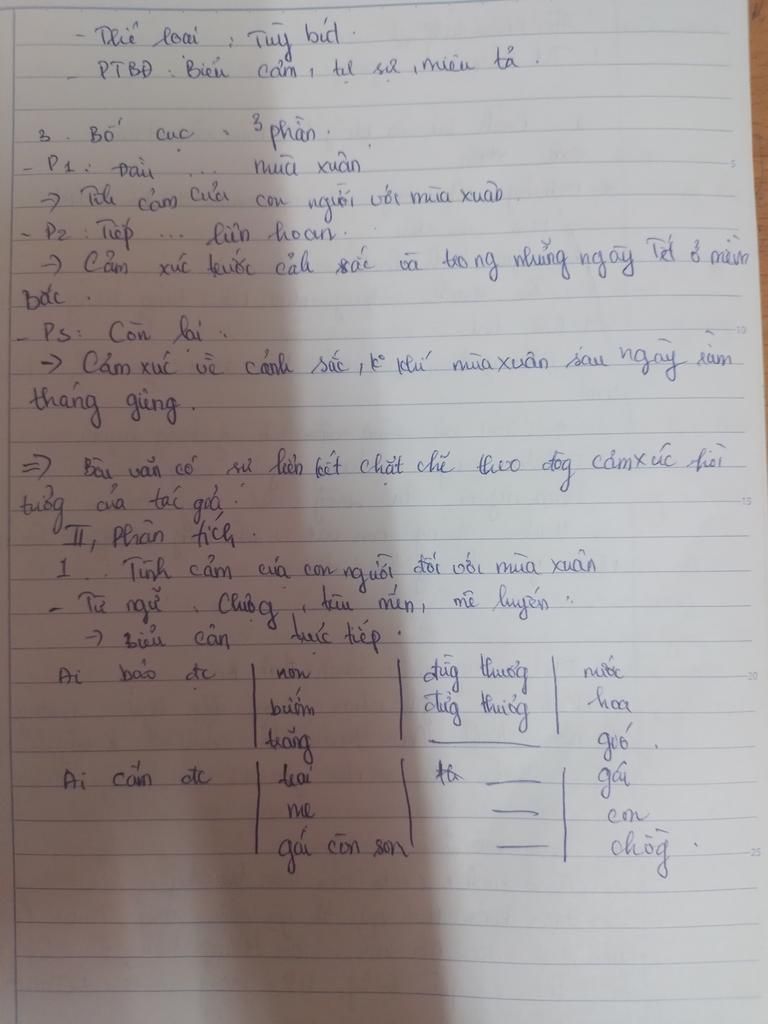 - Thể loại : Tùy bút.
- PTBĐ : Biểu cảm, tự sự, miêu tả.
3. Bố cục : 3 phần.
- P1: Đầu ... mùa xuân
→ Tìh cảm của con người với mùa xuân.
- P2: Tiếp ... liên hoan.
→ Cảm xúc trước cảh sắc và trong những ngày Tết ở miền
bắc.
- P3: Còn lại.
→ Cảm xúc về cảnh sắc, k khí mùa xuân sau ngày rằm
tháng giêng.
=> Bài văn có sự liên kết chặt chẽ theo dòg cảm xúc hồi
tưởng của tác giả.
II, Phân tích.
1. Tình cảm của con người đối với mùa xuân
- Từ ngữ : Chuộg, trìu mến, mê luyến.
→ Biểu cảm trực tiếp.
Ai bảo đc | non | đừg thươg | nước
bướm | đừg thươg | hoa
trăng | — | gió.
Ai cấm đc | trai | — | gái
mẹ | — | con
gái còn son | — | chồg.
5
10
15
20
25